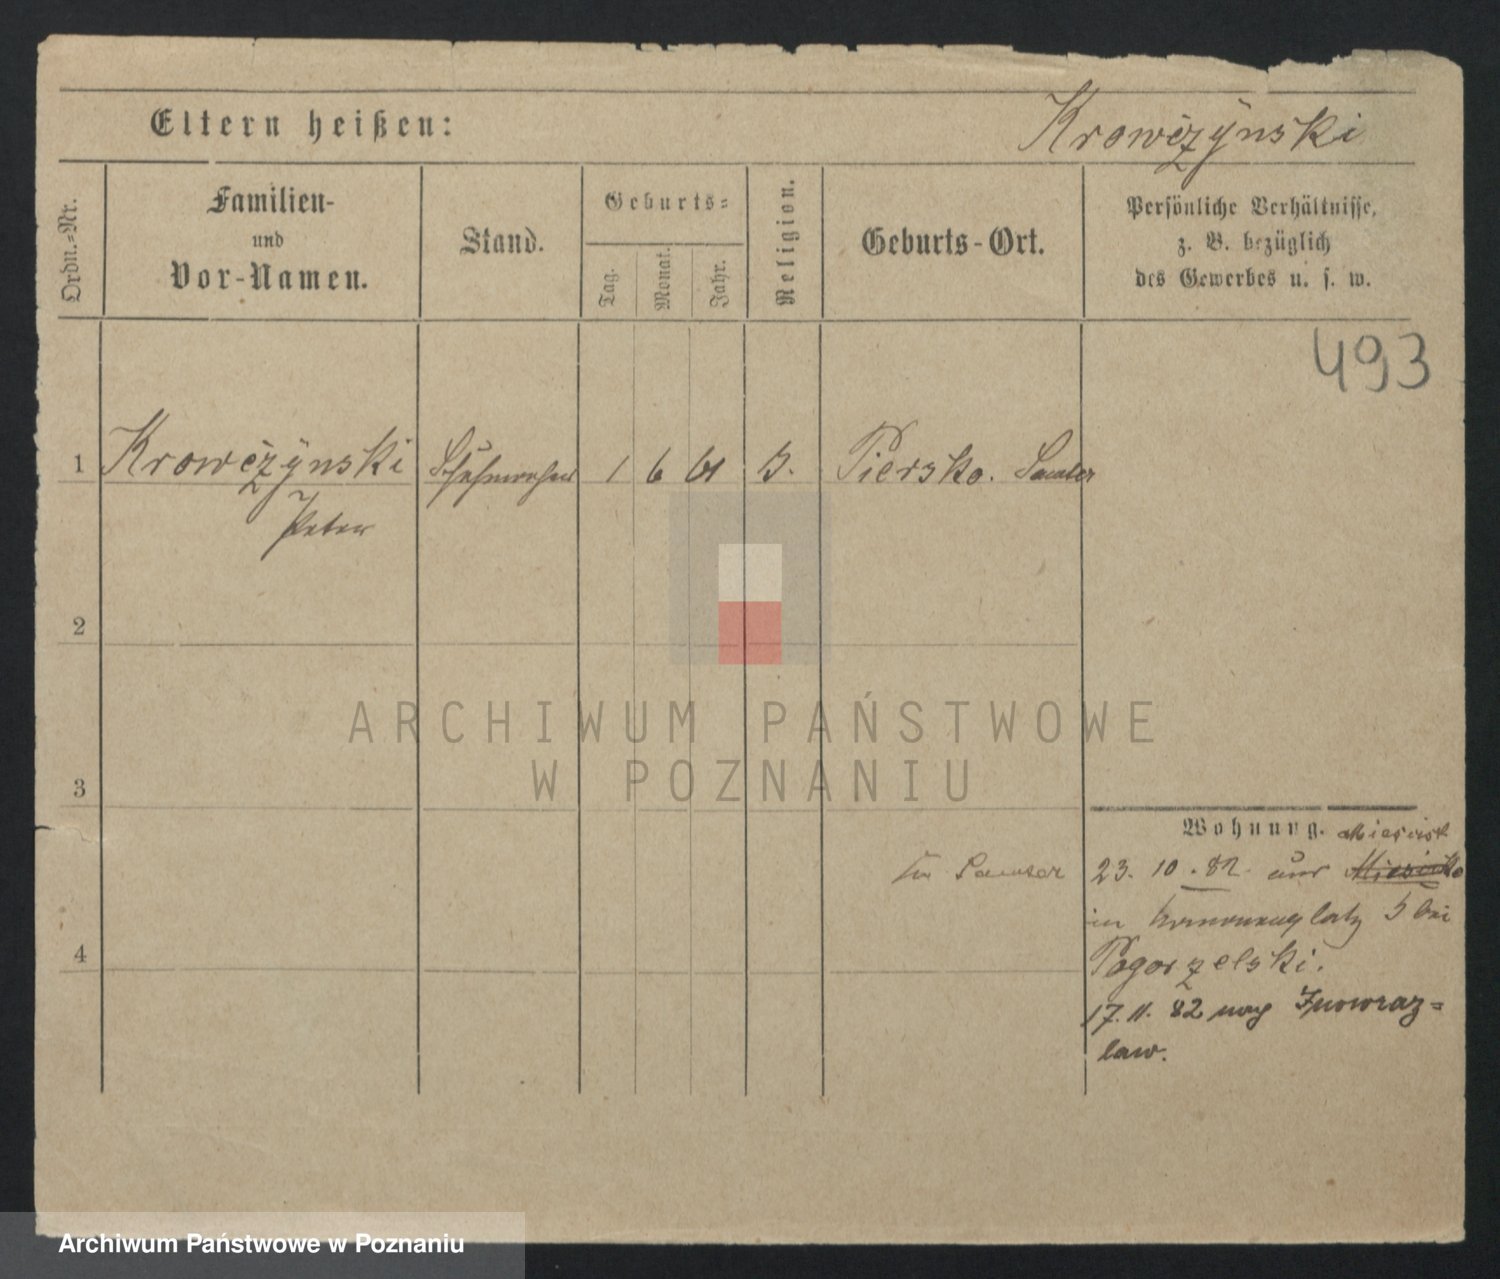 Eltern heißen:
Krowczynski
Ordn.-Nr.
Familien-
und
Vor-Namen.
Stand.
Geburts-
Tag.
Monat.
Jahr.
Religion.
Geburts-Ort.
Persönliche Verhältnisse,
z. B. bezüglich
des Gewerbes u. s. w.
493
1 Krowczynski 1 6 61 Piersko. Samter
Peter
2
ARCHIWUM PAŃSTWOWE
W POZNANIU
3
Wohnung.
Samter 23. 10. 82. aus
4
in 5 bei
Pogorzelski.
17. 11. 82 nach Inowraz=
law.
Archiwum Państwowe w Poznaniu